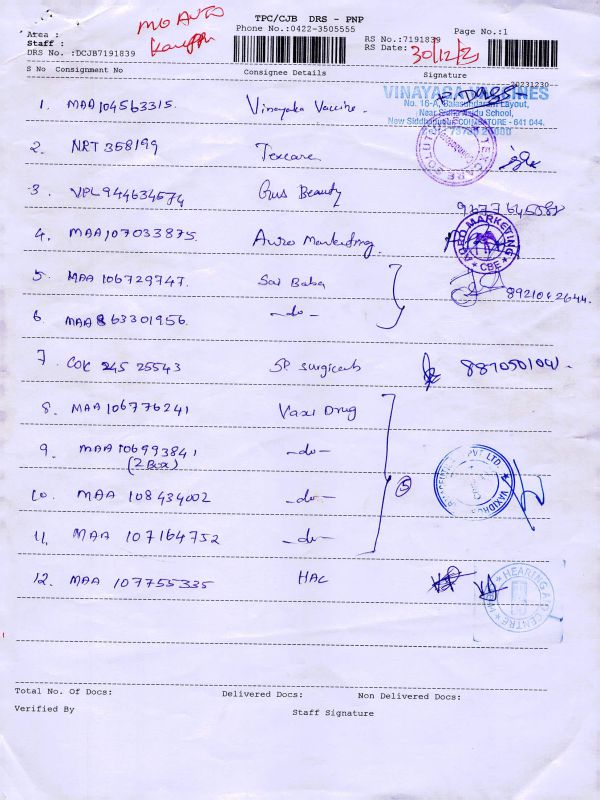 TPC/CJB DRS - PNP
MG AUTO
Area :
Phone No.:0422-3505555
Page No.:1
Staff :
RS No.:7191839
RS Date: 30/12/2
DRS No. :DCJB7191839
S No Consignment No Consignee Details Signature
20231230
VINAYAGA VACCINES
No. 16-A, Balasundaram Layout,
Near Satha Naidu School,
New Siddhapudur, COIMBATORE - 641 044.
1. MAA104563315. Vinayaka Vaccine.
2. NRT 358199 Texcare
3. VPL944634574 Gus Beauty
4. MAA107033875. Auro Marketing
AURO MARKETING
★ CBE ★
5. MAA 106729747. Sai Baba
6. MAA 863301956. -do-
7. COK 245 25543 SP Surgicals
8. MAA106776241 Vaxi Drug
9. MAA 106993841 -do-
(2 Box)
10. MAA 108434002 -do-
5
11. MAA 107164752 -do-
12. MAA 107755335 HAC
HEARING AID CENTRE
Total No. Of Docs: Delivered Docs: Non Delivered Docs:
Verified By Staff Signature